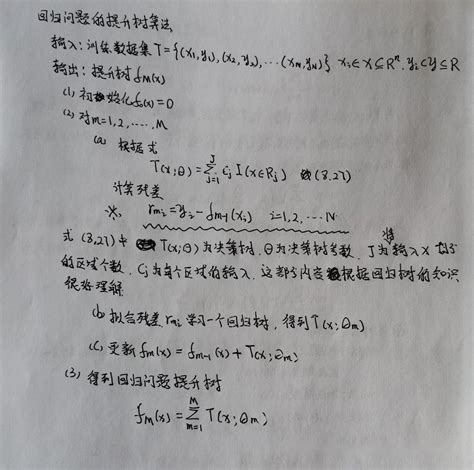 回归问题的提升树算法
输入:训练数据集T={(x₁,y₁),(x₂,y₂),…(x_N,y_N)} xᵢ∈X⊆Rⁿ, yᵢ∈y⊆R
输出:提升树 f_M(x)
(1) 初始化f₀(x)=0
(2) 对m=1,2,……,M
(a) 根据式
T(x;Θ)=∑_{j=1}^{J} cⱼ I(x∈Rⱼ) (8.27)
计算残差
※. r_{mi}=yᵢ-f_{m-1}(xᵢ) i=1,2,…N
式(8.27)中 T(x;Θ)为决策树,Θ为决策树参数,J为将输入X划分
的区域个数,Cⱼ为每个区域的输入,这部分内容根据回归树的知识
很好理解
(b) 拟合残差r_{mi}学习一个回归树,得到T(x;Θₘ)
(c) 更新fₘ(x)=f_{m-1}(x)+T(x;Θₘ)
(3) 得到回归问题提升树
f_M(x)=∑_{m=1}^{M} T(x;Θₘ)